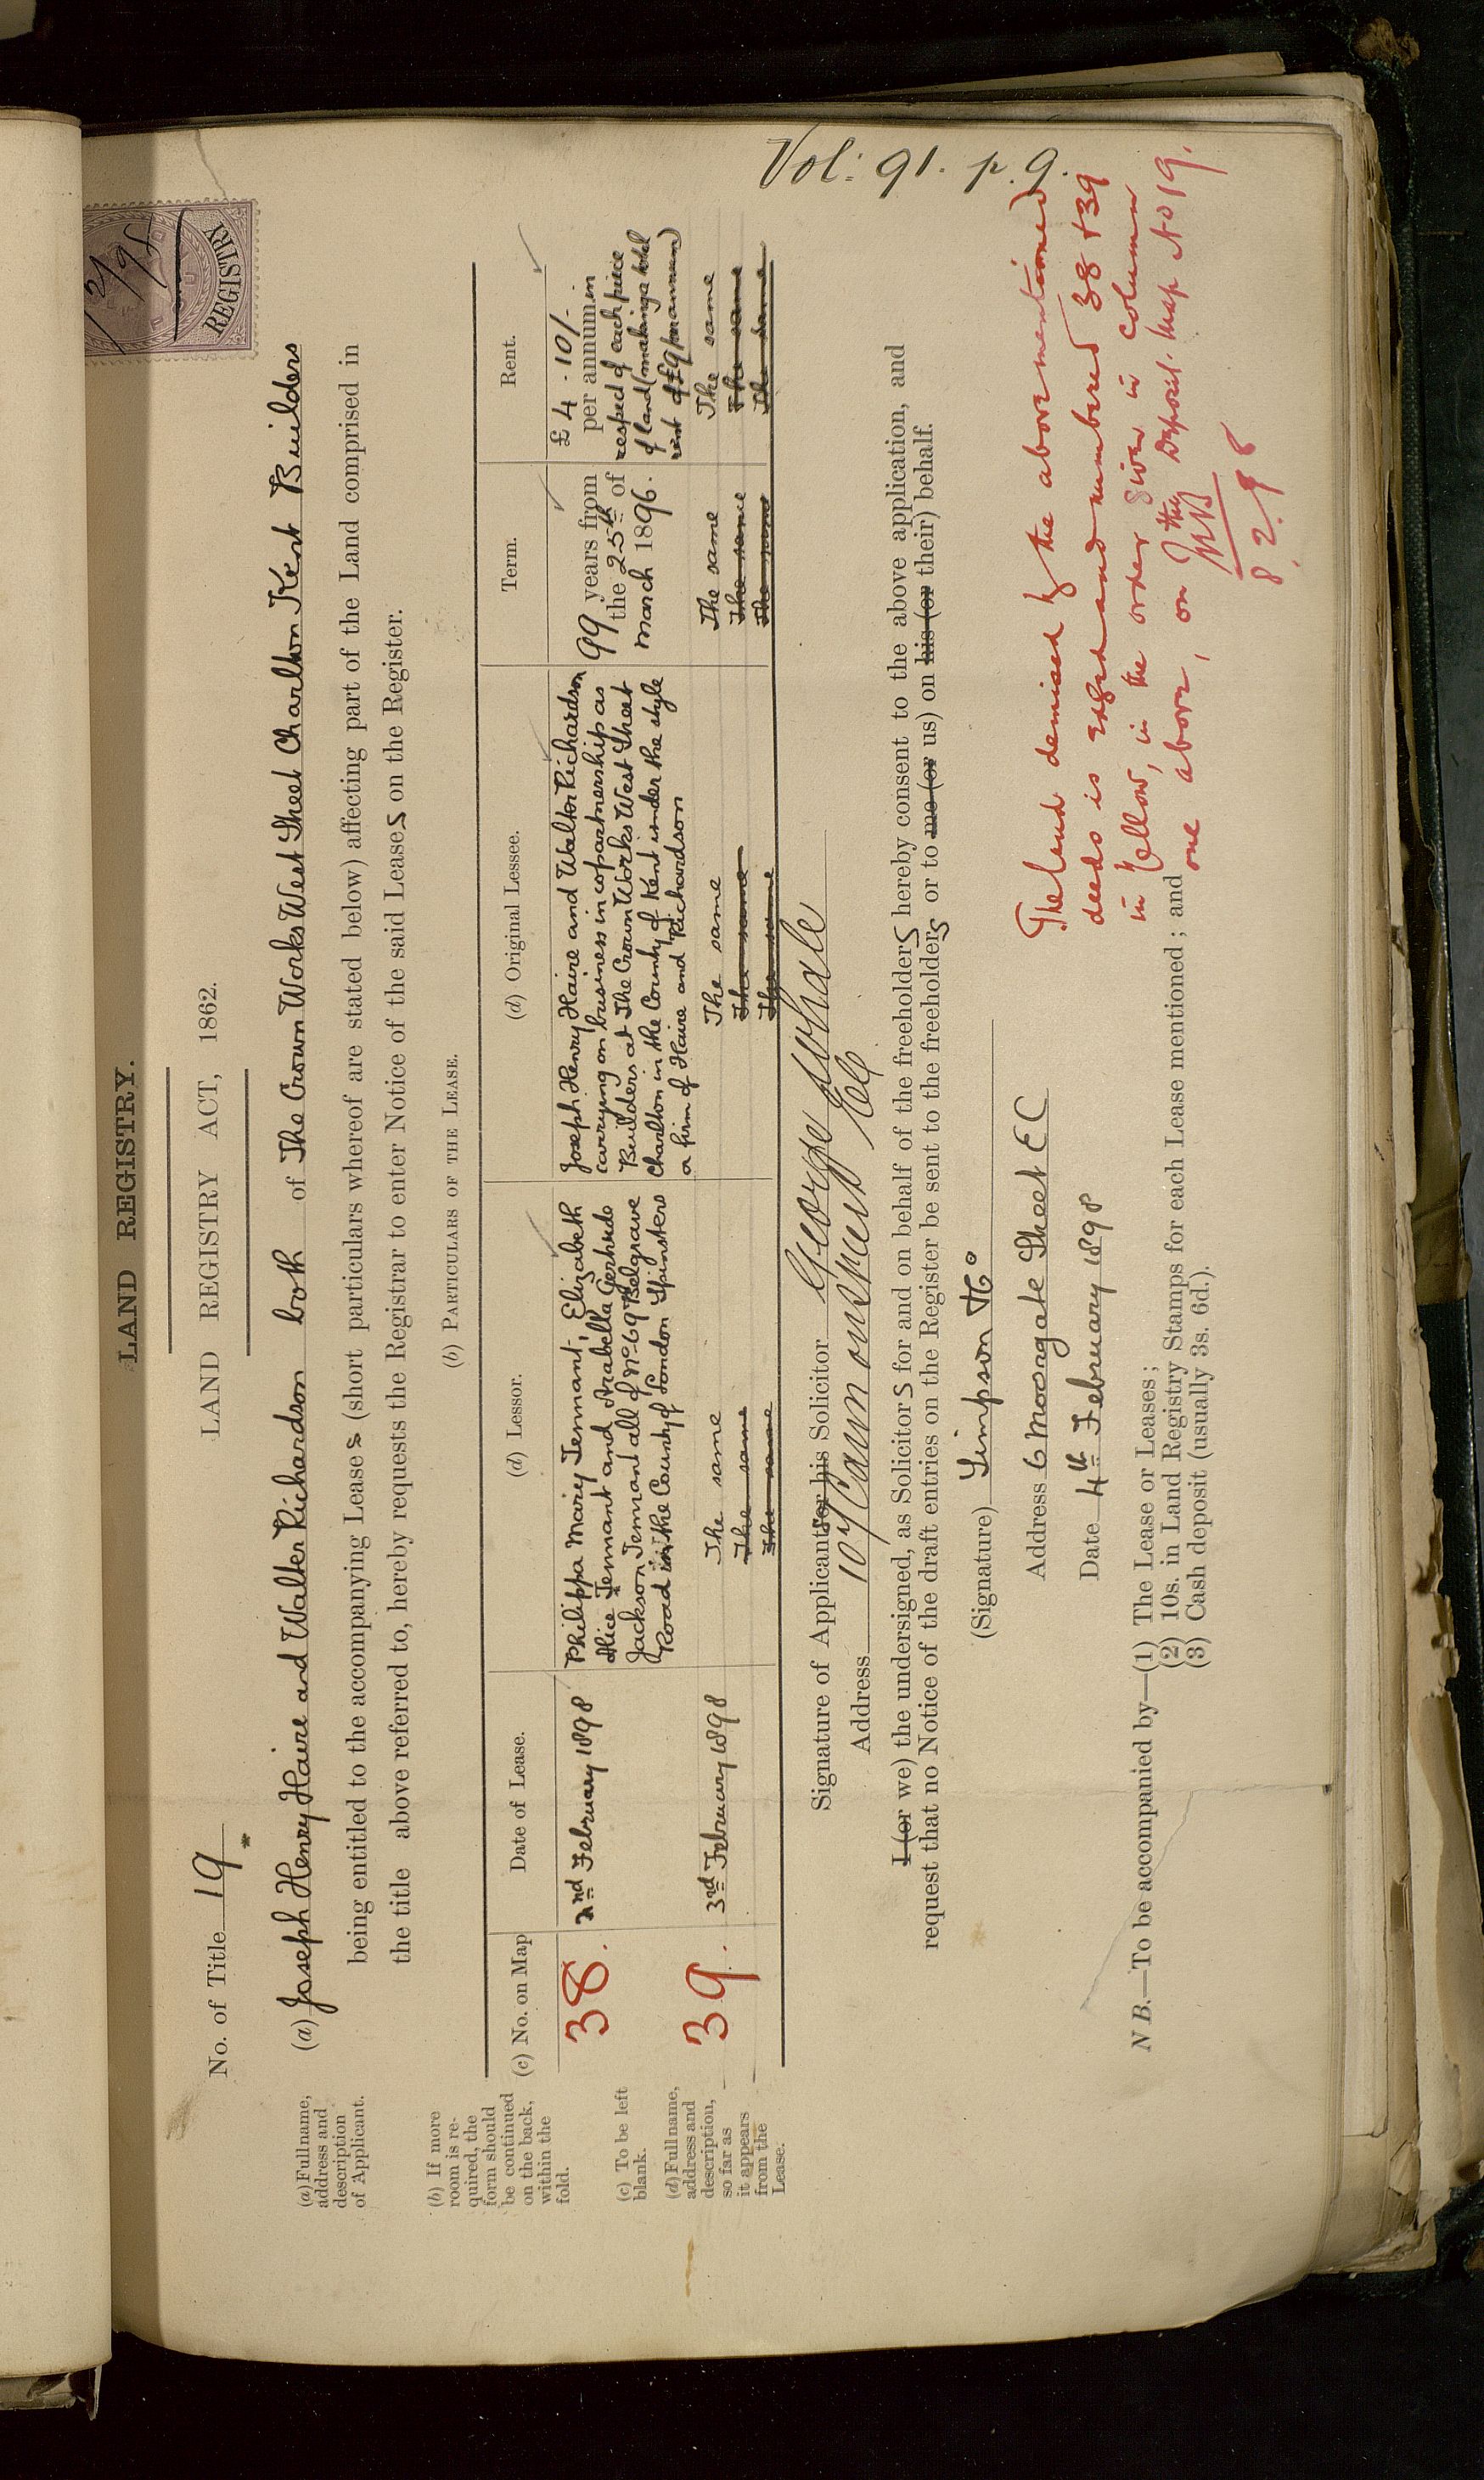 LAND REGISTRY.
LAND REGISTRY ACT, 1862.
No. of Title 19
REGISTRY
(a) Joseph Henry Haire and Walter Richardson both of The Crown Works West Street Charlton Kent Builders
being entitled to the accompanying Leases (short particulars whereof are stated below) affecting part of the Land comprised in
the title above referred to, hereby requests the Registrar to enter Notice of the said Leases on the Register.
(a) Full name,
address and
description
of Applicant.
(b) PARTICULARS OF THE LEASE.
(b) If more
room is re-
quired, the
form should
be continued
on the back,
within the
fold.
(c) To be left
blank.
(d) Full name,
address and
description,
so far as
it appears
from the
Lease.
(c) No. on Map
Date of Lease.
(d) Lessor.
(d) Original Lessee.
Term.
Rent.
38.
2nd February 1898
Philippa Mary Tennant, Elizabeth
Alice Tennant and Arabella Gertrude
Jackson Tennant all of No. 69 Belgrave
Road in the County of London Spinsters
Joseph Henry Haire and Walter Richardson
carrying on business in copartnership as
Builders at The Crown Works West Street
Charlton in the County of Kent under the style
or firm of Haire and Richardson
99 years from
the 25th of
March 1896.
£4.10/-
per annum in
respect of each piece
of land (making a total
rent of £9 per annum)
39.
3rd February 1898
The same
The same
The same
The same
The same
The same
The same
The same
The same
The same
The same
The same
Signature of Applicants or his Solicitor George Whale
Address 107 Cannon Street EC
I (or we) the undersigned, as Solicitors for and on behalf of the freeholders hereby consent to the above application, and
request that no Notice of the draft entries on the Register be sent to the freeholders or to me (or us) on his (or their) behalf.
(Signature) Simpson & Co
Address 6 Moorgate Street EC
Date 4th February 1898
Vol: 91. p. 9.
The land demised by the above mentioned
deeds is edged and numbered 38 & 39
in Yellow, in the order given in column
one above, on the Deposit. Map No 19.
8.2.98
N B.—To be accompanied by—(1) The Lease or Leases;
(2) 10s. in Land Registry Stamps for each Lease mentioned; and
(3) Cash deposit (usually 3s. 6d.).